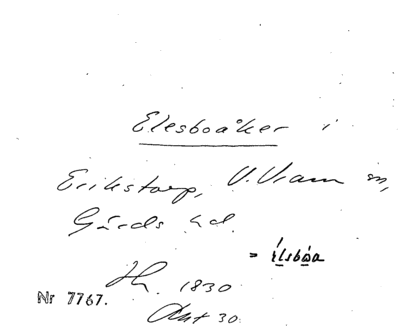 Elesboåker i
Erikstorp, V. Vram sn,
Gärds hd.
= élsbóa
Jh. 1830
Nr 7767.
Akt 30